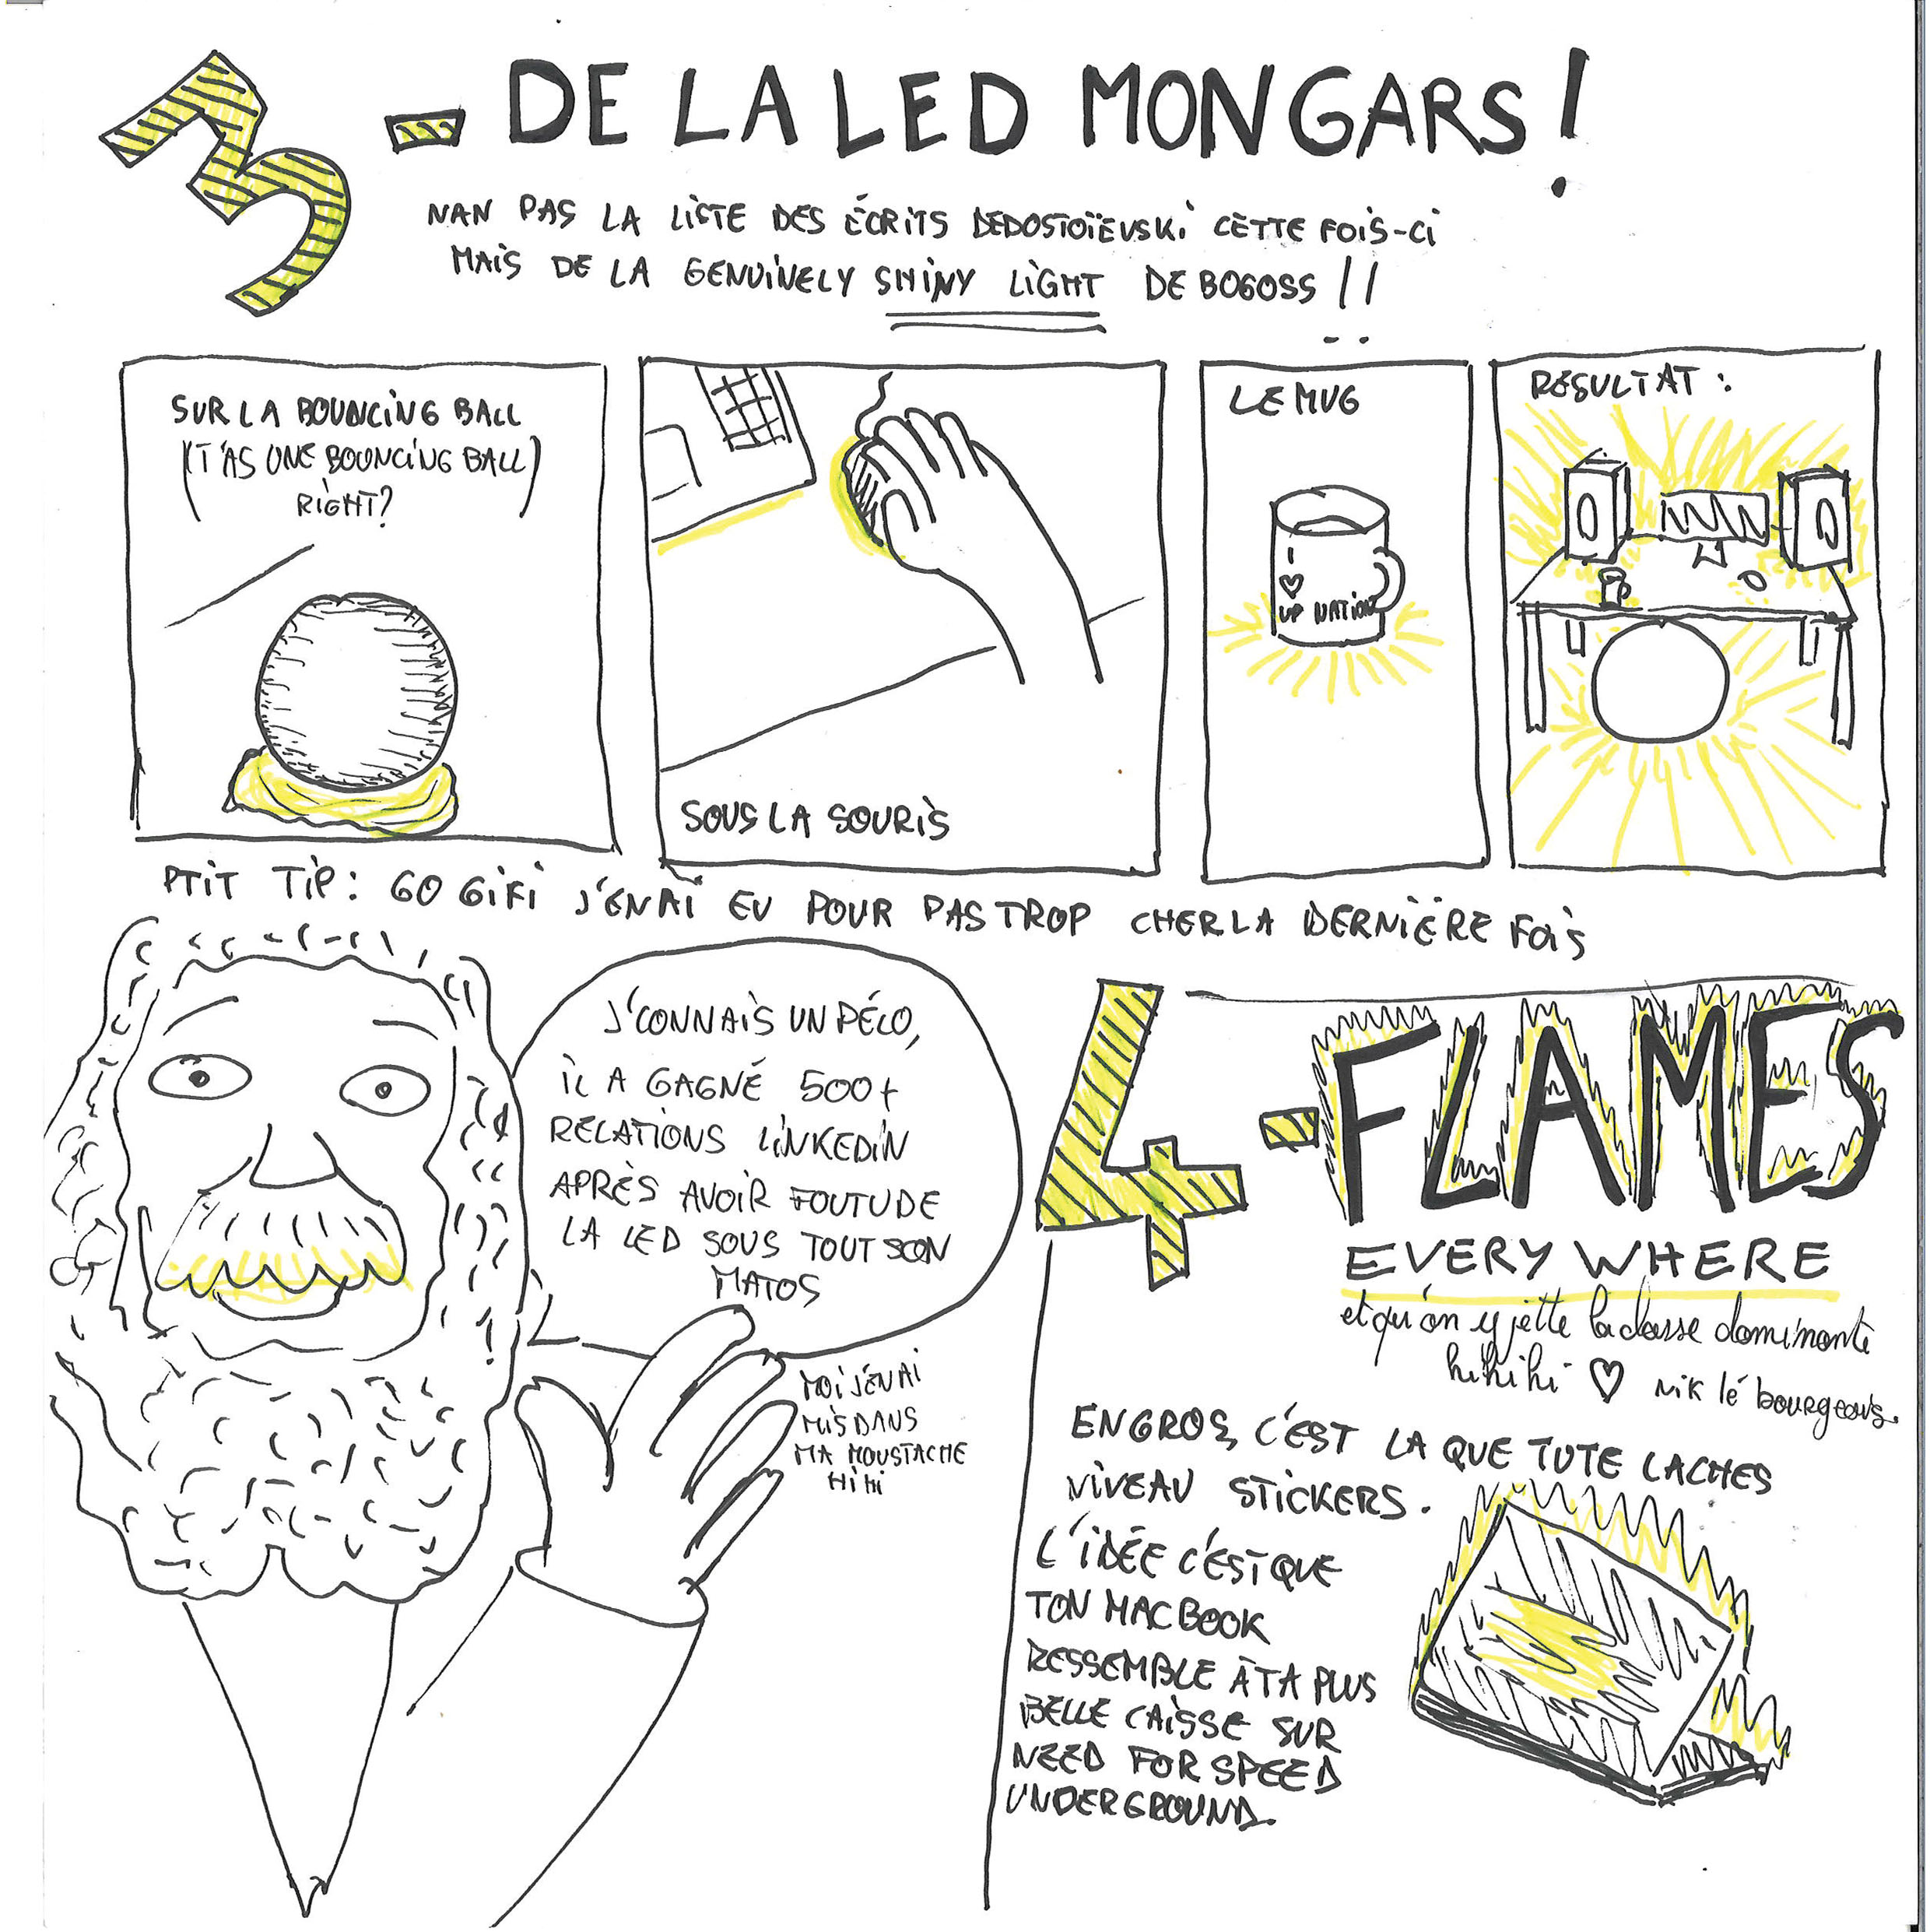 3 - DE LA LED MON GARS !
NAN PAS LA LISTE DES ÉCRITS DE DOSTOÏEVSKI CETTE FOIS-CI
MAIS DE LA GENUINELY SHINY LIGHT DE BOGOSS !!
SUR LA BOUNCING BALL
(T'AS UNE BOUNCING BALL
RIGHT?)
SOUS LA SOURIS
LE MUG
I
♡
UP NATION
RESULTAT :
PTIT TIP : GO GIFI J'EN AI EU POUR PAS TROP CHER LA DERNIÈRE FOIS
J'CONNAIS UN PÉLO,
IL A GAGNÉ 500+
RELATIONS LINKEDIN
APRÈS AVOIR FOUTU DE
LA LED SOUS TOUT SON
MATOS
MOI J'EN AI
MIS DANS
MA MOUSTACHE
HIHI
4 - FLAMES
EVERYWHERE
et qu'on y jette la classe dominante
hihihi ♡ nik lé bourgeois.
EN GROS, C'EST LA QUE TU TE LACHES
NIVEAU STICKERS.
L'IDÉE C'EST QUE
TON MACBOOK
RESSEMBLE À TA PLUS
BELLE CAISSE SUR
NEED FOR SPEED
UNDERGROUND.